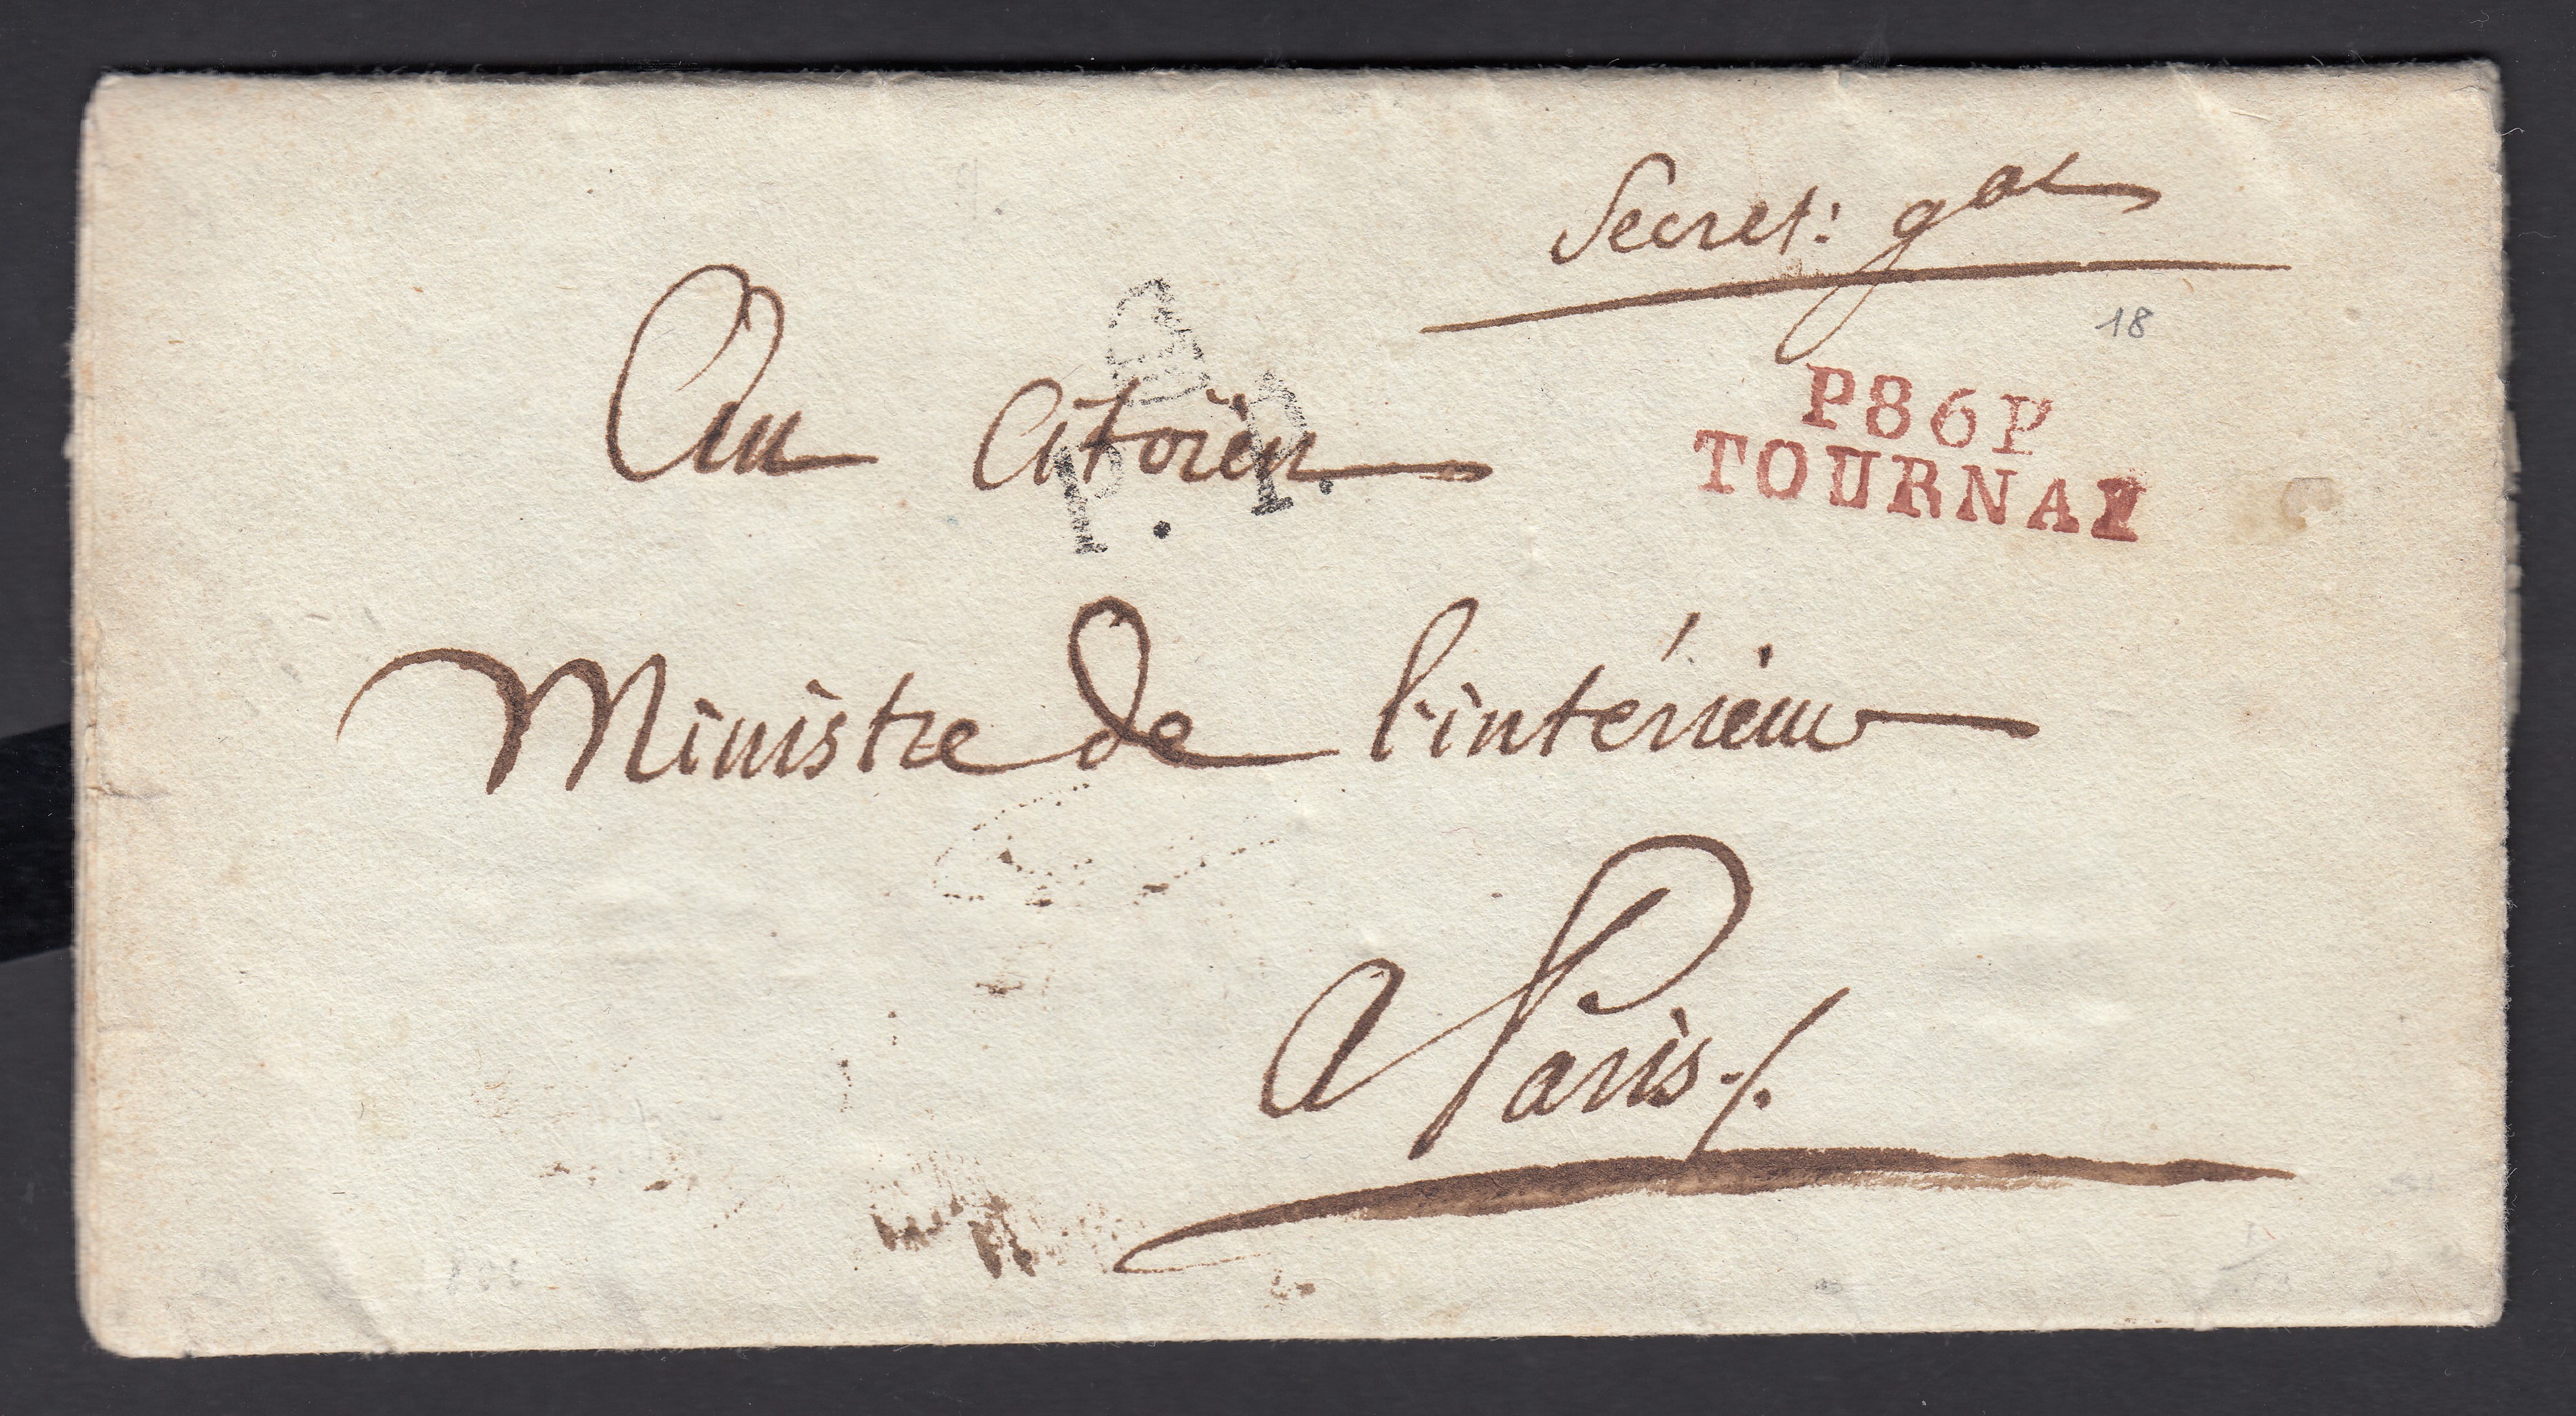 Secret: gal
18
Au Citoïen
P.P.
P86P
TOURNAY
Ministre de l'intérieur
A Paris ./.